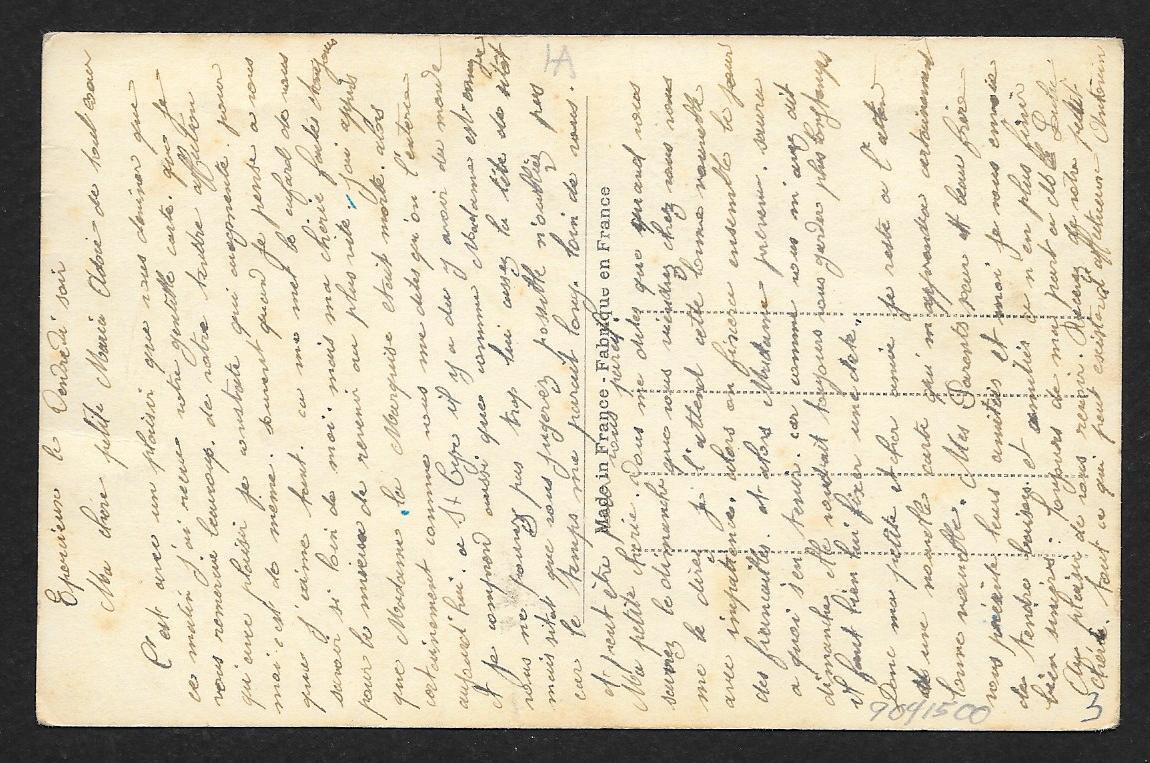 Eponieux le Vendredi soir
Ma chère petite Marie Adorée de tout coeur
C'est avec un plaisir que vous deviner que
ce matin j'ai recue votre gentille carte. que je
vous remercie beaucoup. de votre tendre affection
qu'une plaisir je constate qui augmente. pour
moi c'est de même. souvent quand je pense a vous
que j'aime tant. ca me met le cafard de vous
savoir si loin de moi. mais ma chérie faites toujours
pour le mieux de revenir au plus vite. j'ai appris
que Madame la Marquise etait morte. alors
certainement comme vous me dites qu'on l'enterre
aujourd'hui. a St Cyr il y a du y avoir du monde
et je comprend aussi que comme Madame est
vous ne pouvez pas trop lui causer la tête de
mais sitot que vous jugerez possible n'oubliez pas
car le temps me parait long. loin de vous.
et peut être
Made in France - Fabriqué en France
Ma petite chérie. vous me dites que quand vous
saurez le dimanche que vous viendrez chez vous vous
me le direz j'attend cette bonne nouvelle
avec impatience. alors on fixerai ensemble le jour
des fiancailles. et alors Madame prevenu. saura
a quoi s'en tenir. car comme vous m'avez dit
démarche elle voudrait toujours vous garder plus longtemps
il faut bien lui fixer une date,
Donc ma petite et cher amie je reste a l'attend
une nouvelle carte qui m'apprendra certainement
bonne nouvelle. Mes Parents soeur et beau frère
vous tous amitiés et moi je vous envoie
de tendre baisers. et amitiés a n'en plus finir
bien sincères bonjours de ma part a Mlle
Au plaisir de vous revoir. Recevez de votre petit
chérie. tout ce qui peut exister d'affectueux Antonin
LA
9041500
3